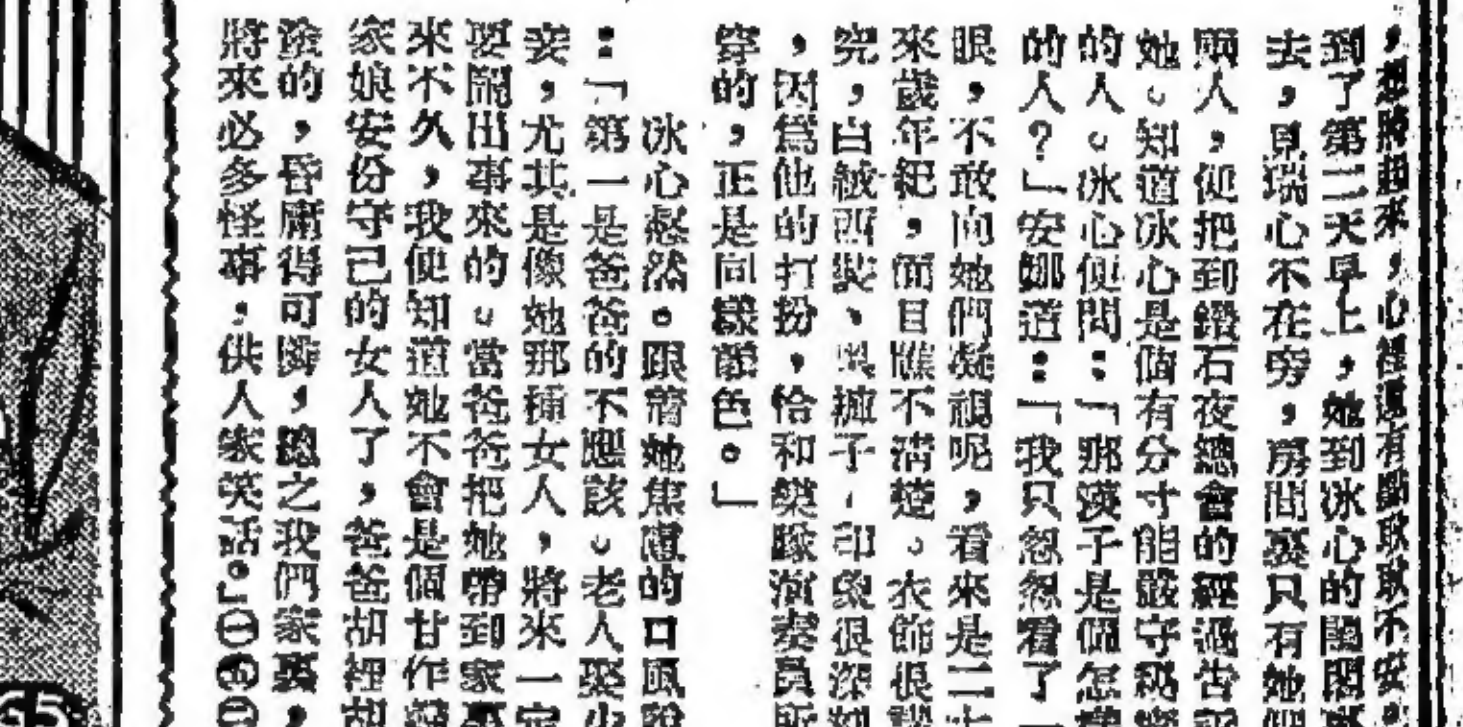 ，想將起來，心裡還有點耿耿不安
到了第二天早上，她到冰心的閨閣
去，見瑞心不在旁，房間裏只有她們
兩人，便把到鑽石夜總會的經過告訴
她。知道冰心是個有分寸能嚴守秘密
的人。冰心便問：「那漢子是個怎樣
的人？」安娜道：「我只忽忽看了一
眼，不敢向她們凝視呢，看來是二十
來歲年紀，面目瞧不清楚。衣飾很講
究，白絨西裝、黑褲子，印象很深刻
，因爲他的打扮，恰和樂隊演奏員所
穿的，正是同樣顏色。」
冰心愁然。跟着她焦慮的口風說
：「第一是爸爸的不應該。老人娶少
妾，尤其是像她那種女人，將來一定
要鬧出事來的。當爸爸把她帶到家裏
來不久，我便知道她不會是個甘作歸
家娘安份守己的女人了，爸爸胡裡胡
塗的，昏庸得可憐，總之我們家裏，
將來必多怪事，供人家笑話。」㊀㊅㊁